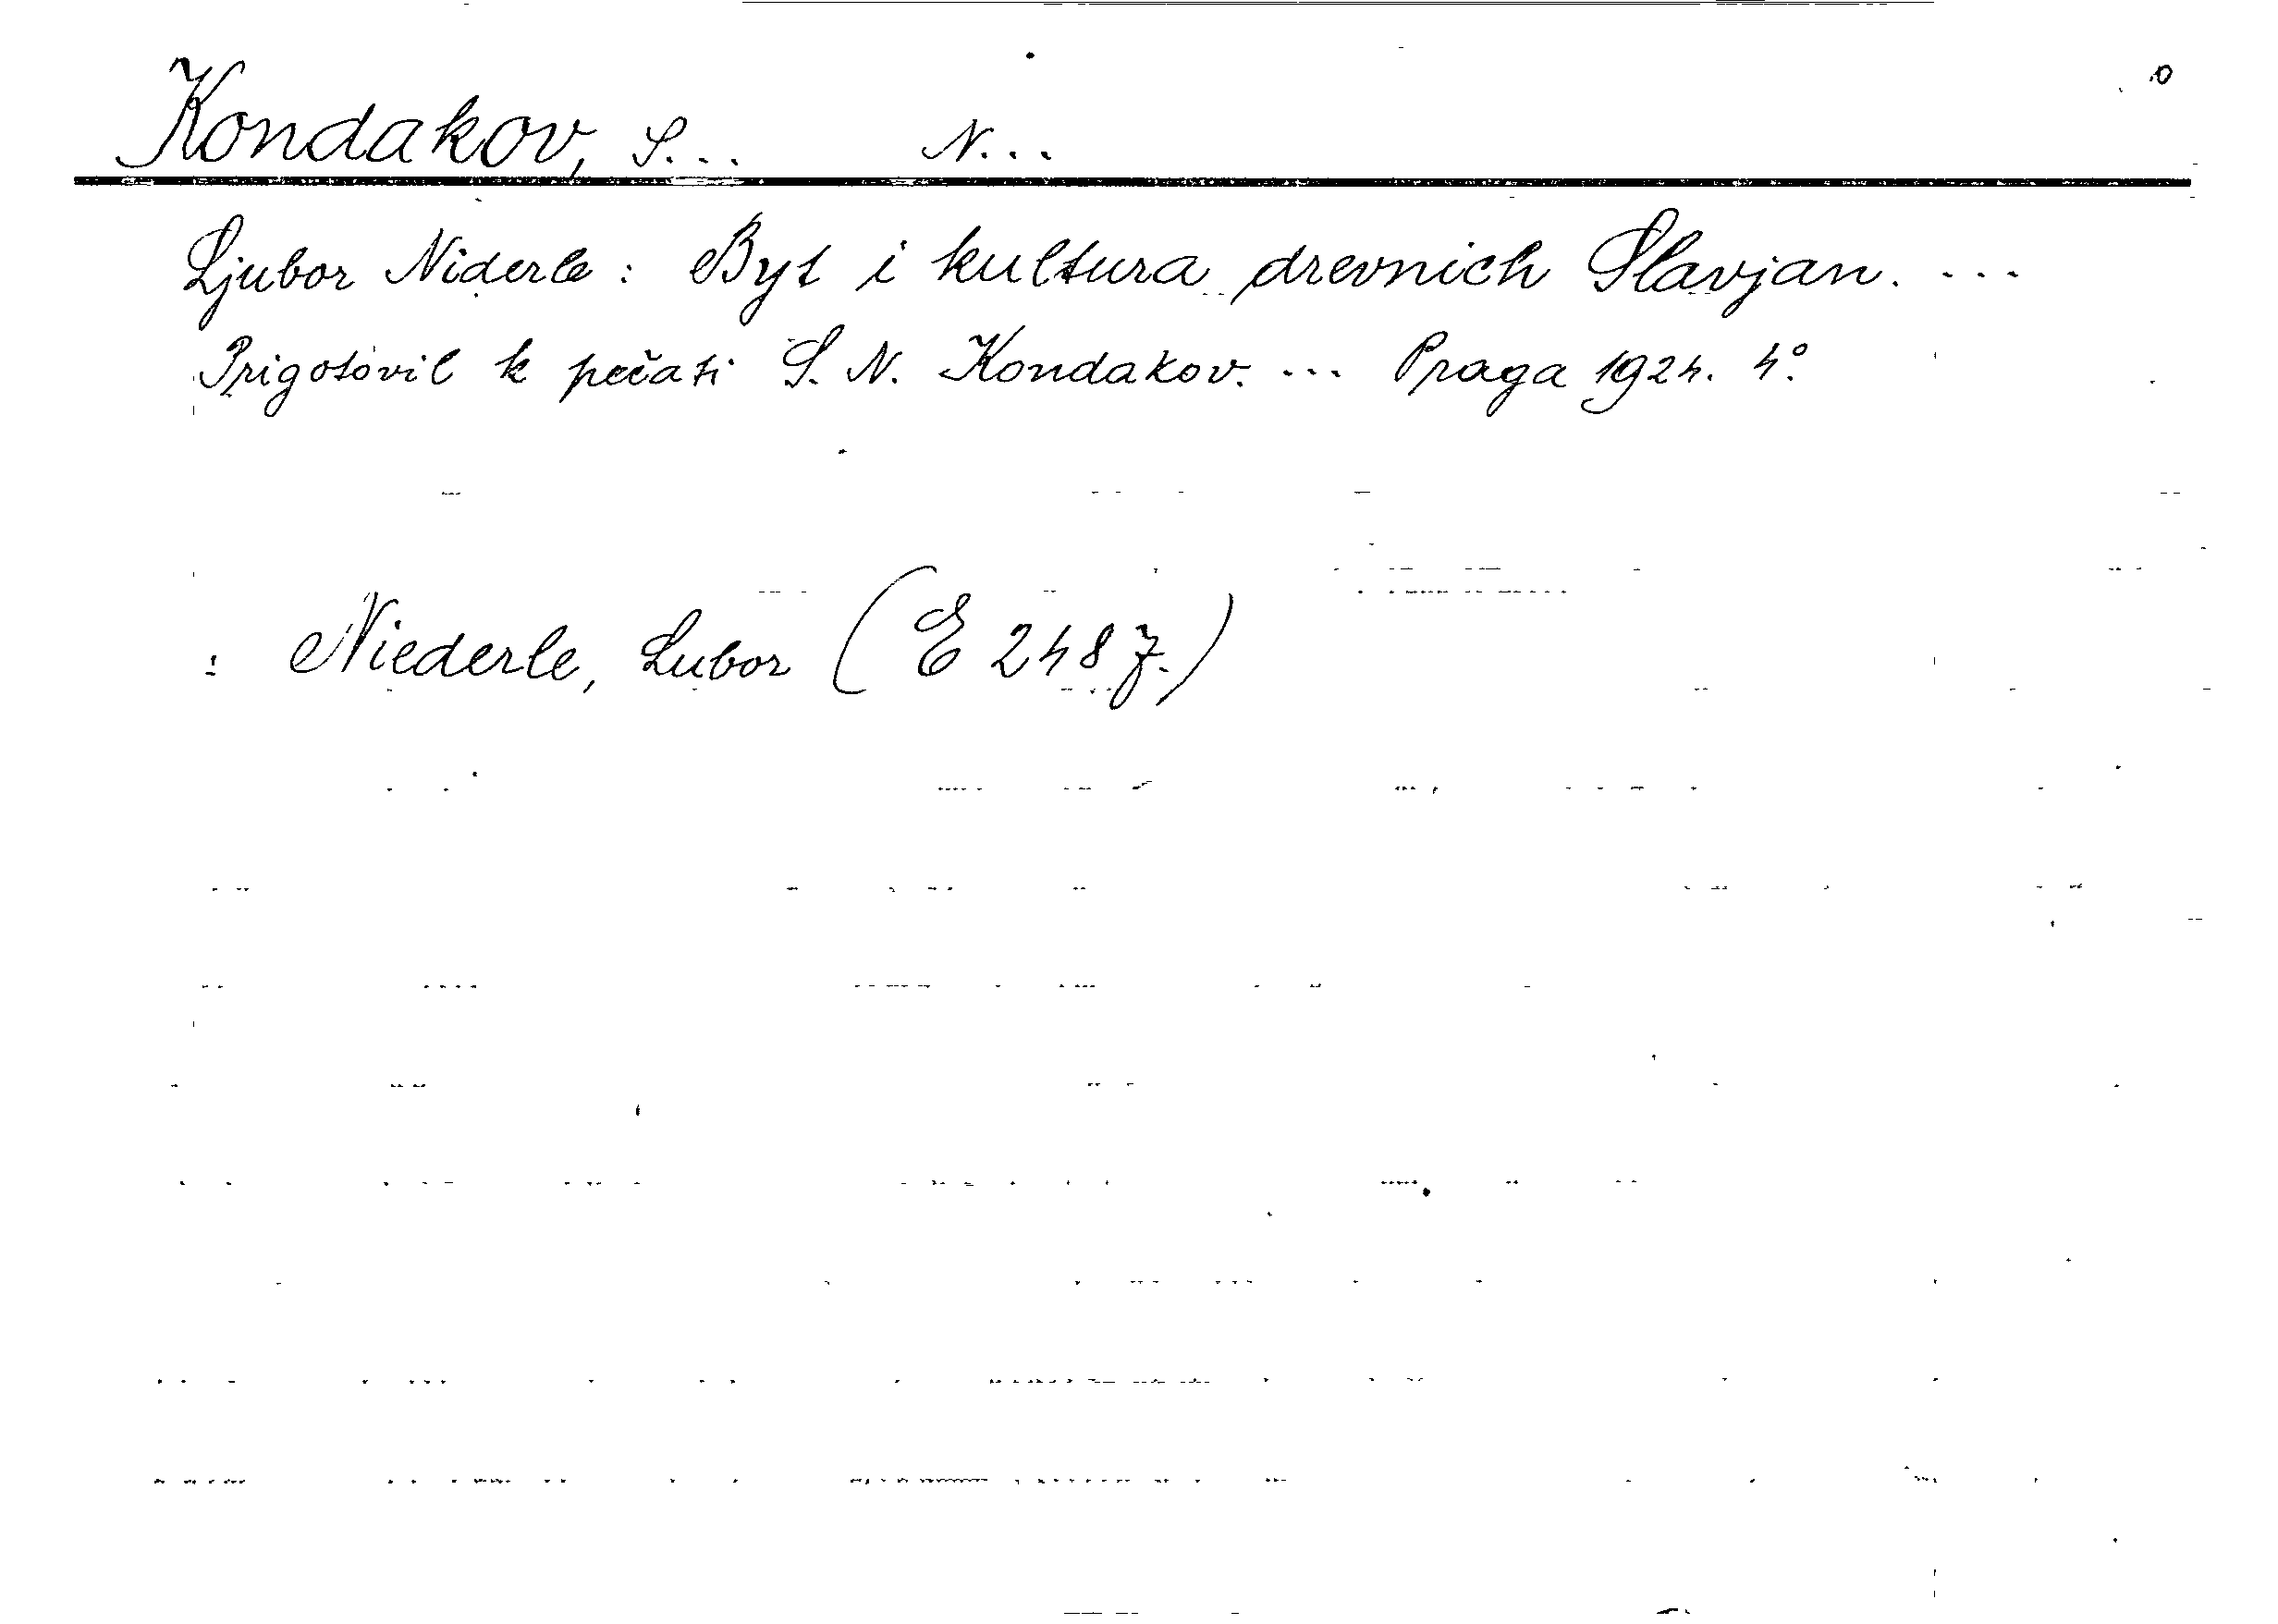 Kondakov, S... N...
Ljubor Niderle: Byt i kultura drevnich Slavjan. ...
Prigotovil k pečati S. N. Kondakov. ... Praga 1924. 4°.
: Niederle, Lubor (E 2487.)